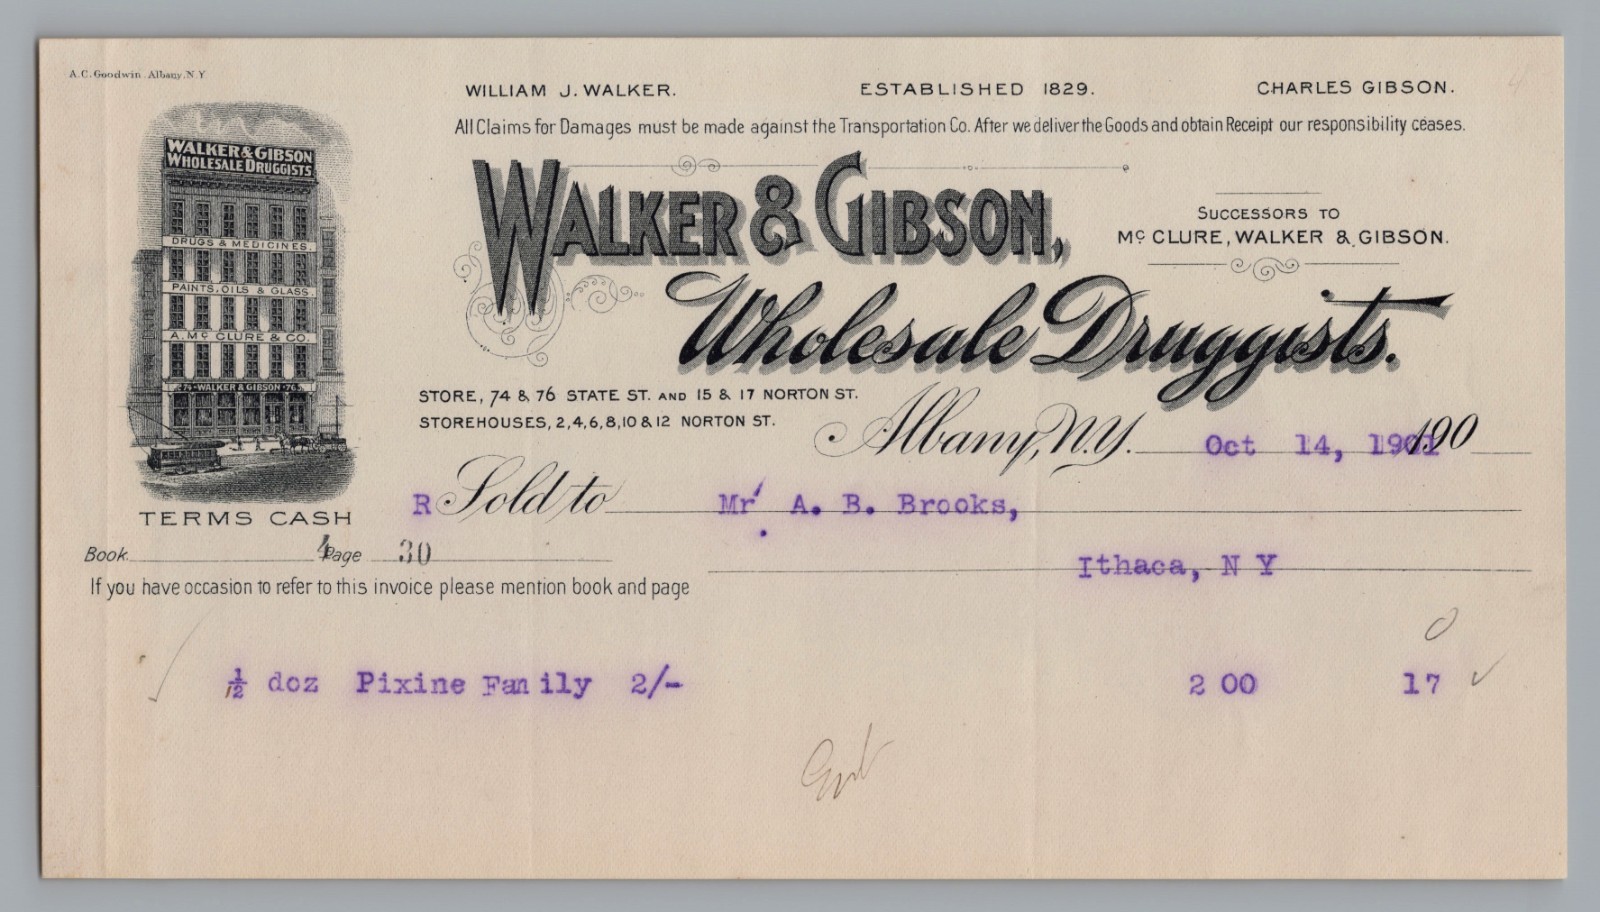 A.C. Goodwin. Albany, N.Y.
WILLIAM J. WALKER. ESTABLISHED 1829. CHARLES GIBSON.
All Claims for Damages must be made against the Transportation Co. After we deliver the Goods and obtain Receipt our responsibility ceases.
WALKER & GIBSON
WHOLESALE DRUGGISTS
DRUGS & MEDICINES.
PAINTS, OILS & GLASS.
A. Mc CLURE & CO.
74 WALKER & GIBSON 76
WALKER & GIBSON,
SUCCESSORS TO
Mc CLURE, WALKER & GIBSON.
Wholesale Druggists.
STORE, 74 & 76 STATE ST. AND 15 & 17 NORTON ST.
STOREHOUSES, 2,4,6,8,10 & 12 NORTON ST.
Albany, N.Y. Oct 14, 1901 190
TERMS CASH
R Sold to Mr. A. B. Brooks,
Book 4 Page 30
Ithaca, N Y
If you have occasion to refer to this invoice please mention book and page
0
½ doz Pixine Family 2/- 2 00 17